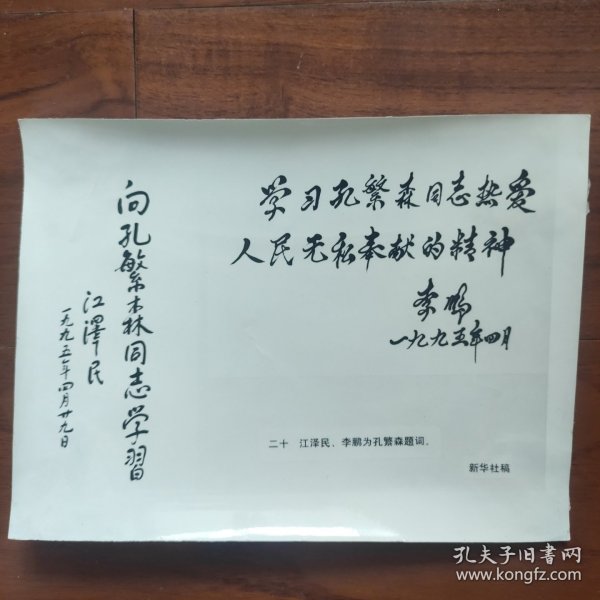 向孔繁森同志学習
江澤民
一九九五年四月廿九日
学习孔繁森同志热爱
人民无私奉献的精神
李鹏
一九九五年四月
二十 江泽民、李鹏为孔繁森题词。
新华社稿
孔夫子旧书网
www.kongfz.com